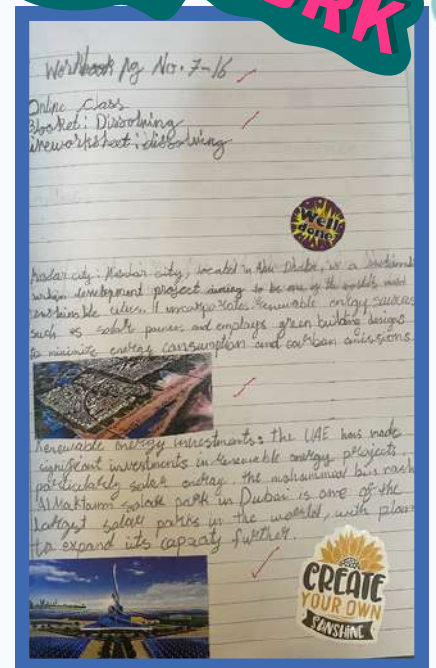 ORK
Workbook pg No. 7-16
Online class
Blooket: Dissolving
Liveworksheet: dissolving
Well done
Masdar city: Masdar city, located in Abu Dhabi, is a
urban development project aiming to be one of the world's most
sustainable cities. It incorporates renewable energy sources
such as solar power and employs green building designs
to minimize energy consumption and carbon emissions.
Renewable energy investments: the UAE has made
significant investments in renewable energy projects,
particularly solar energy. the mohammed bin rash
Al Maktoum solar park in Dubai is one of the
largest solar parks in the world, with plans
to expand its capacity further.
CREATE
YOUR OWN
SUNSHINE